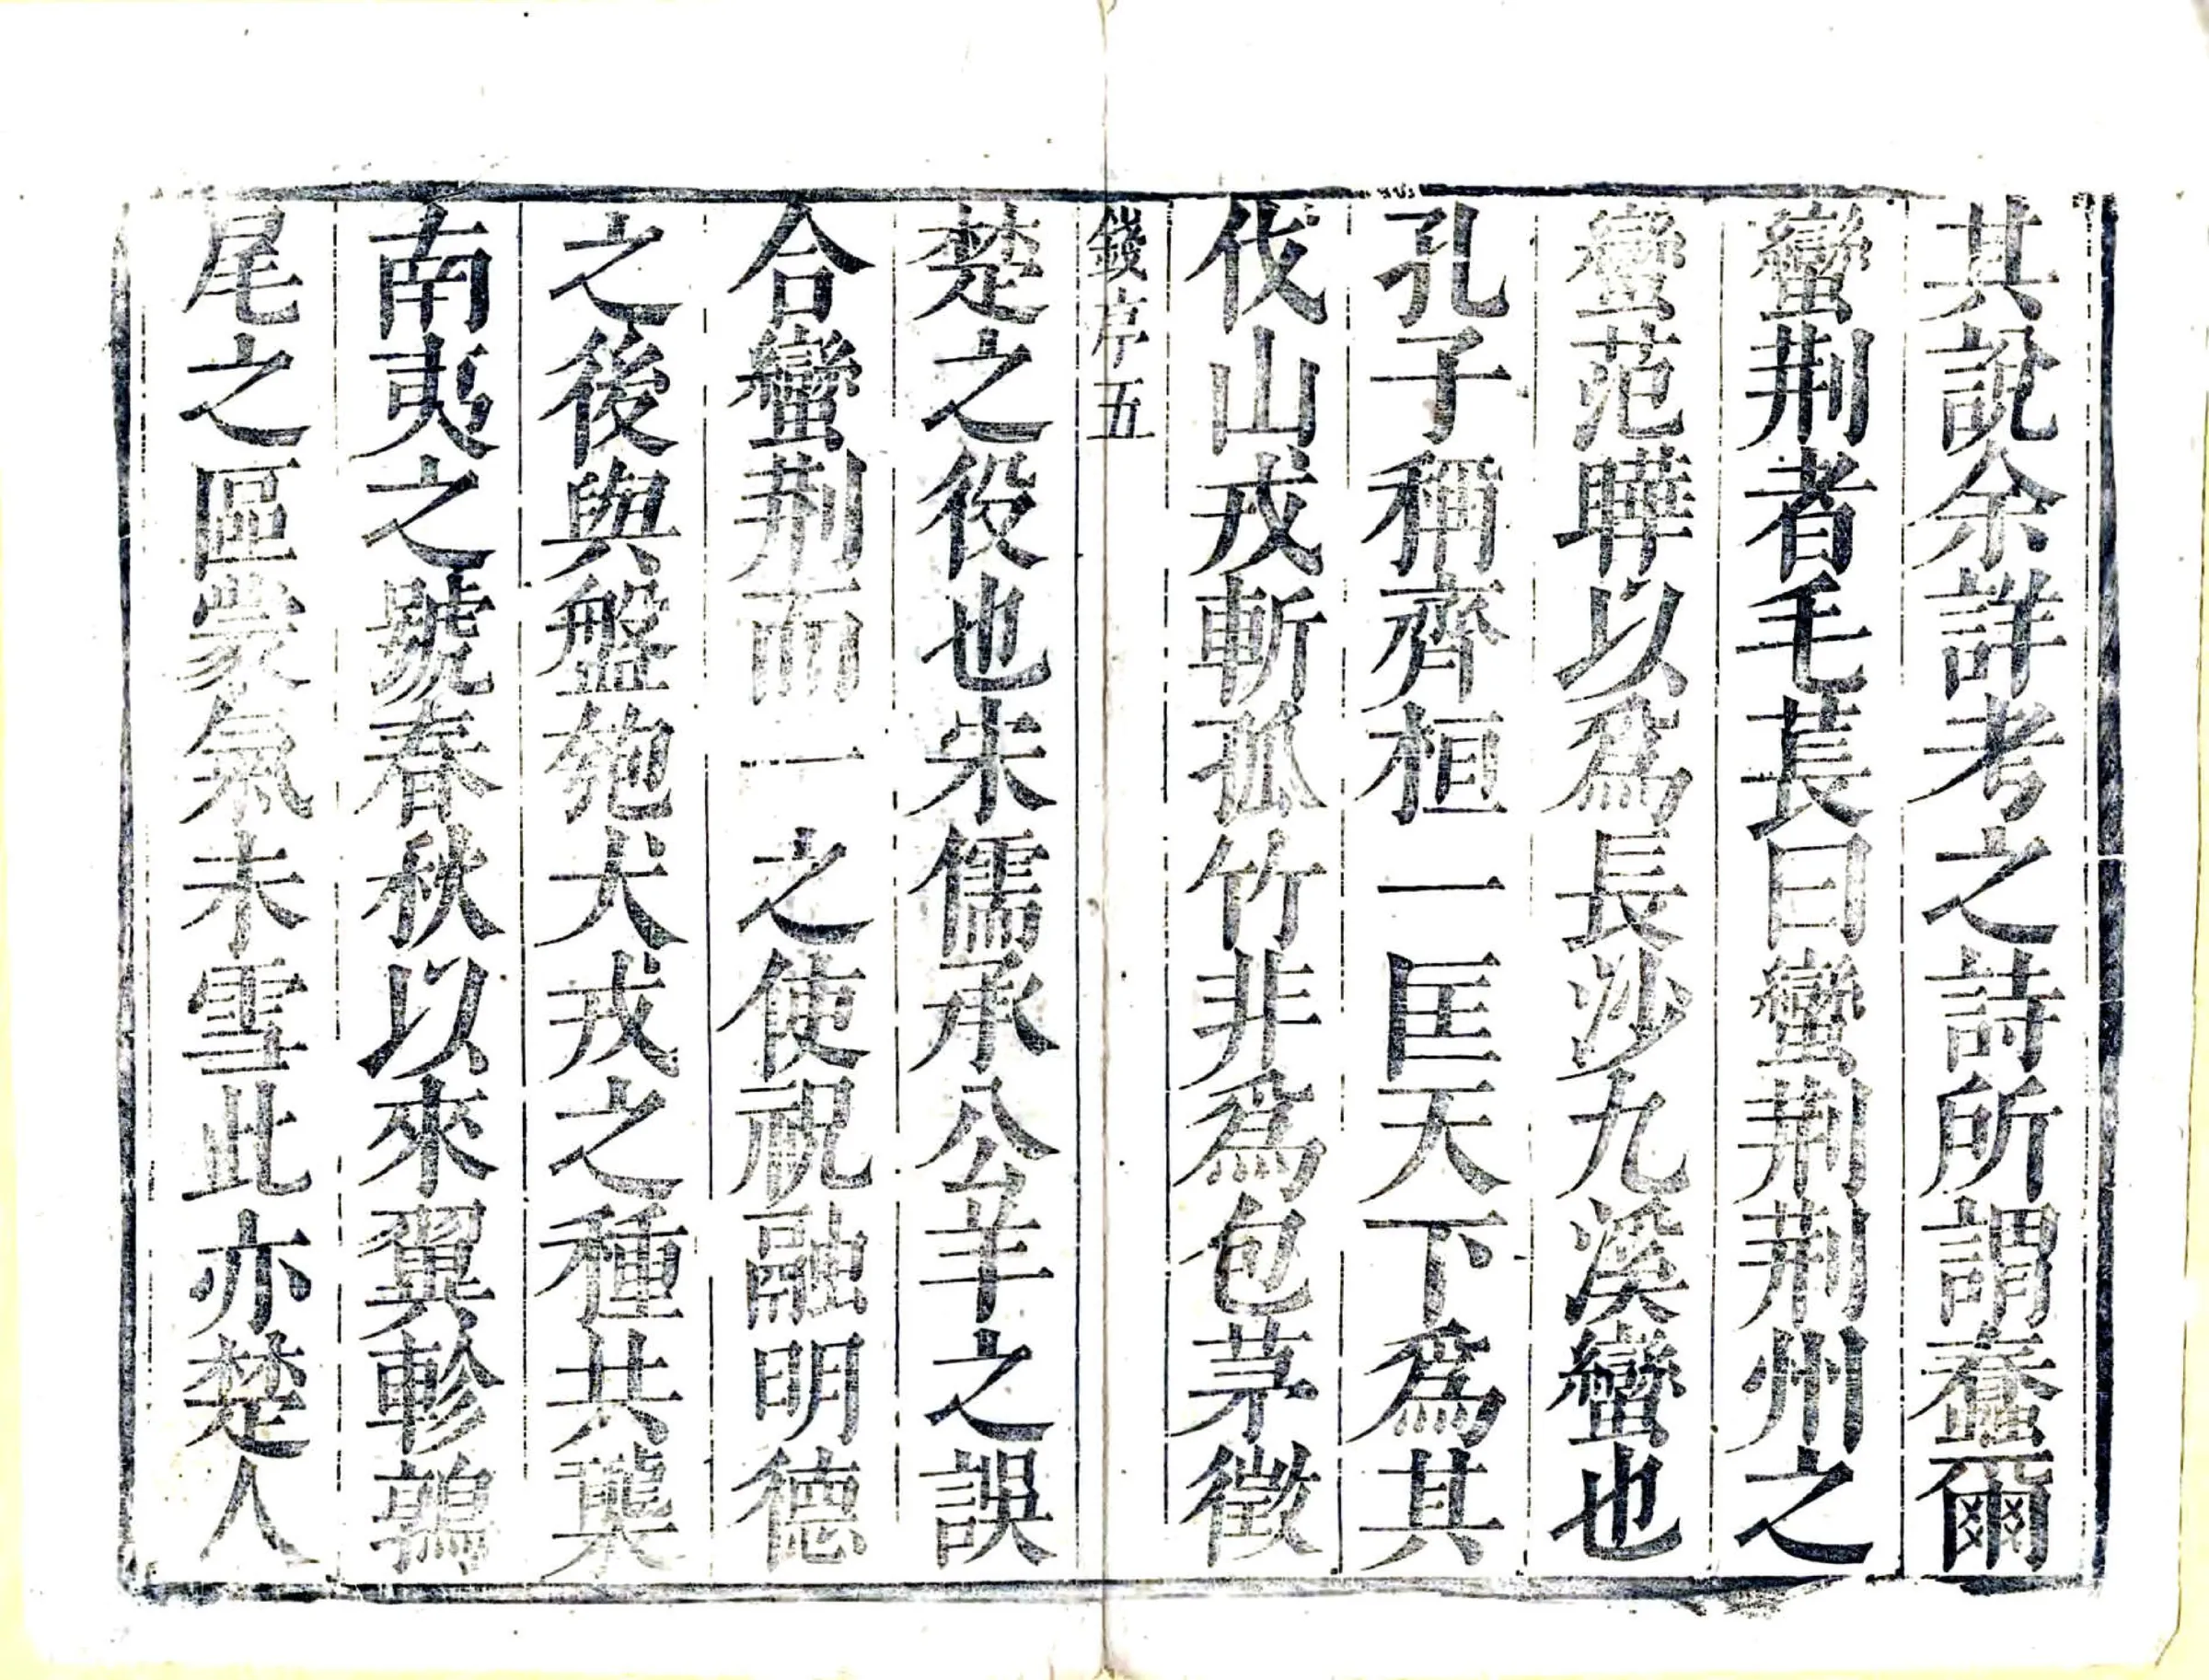 其說余詳考之詩所謂蠢爾
蠻荆者毛萇曰蠻荆荆州之
蠻范曄以爲長沙九溪蠻也
孔子稱齊桓一匡天下爲其
伐山戎斬孤竹非爲包茅徵
錢序五
楚之役也宋儒承公羊之誤
合蠻荆而一之使祝融明德
之後與盤匏犬戎之種共襲
南夷之號春秋以來翼軫鶉
尾之區蒙氣未雪此亦楚人